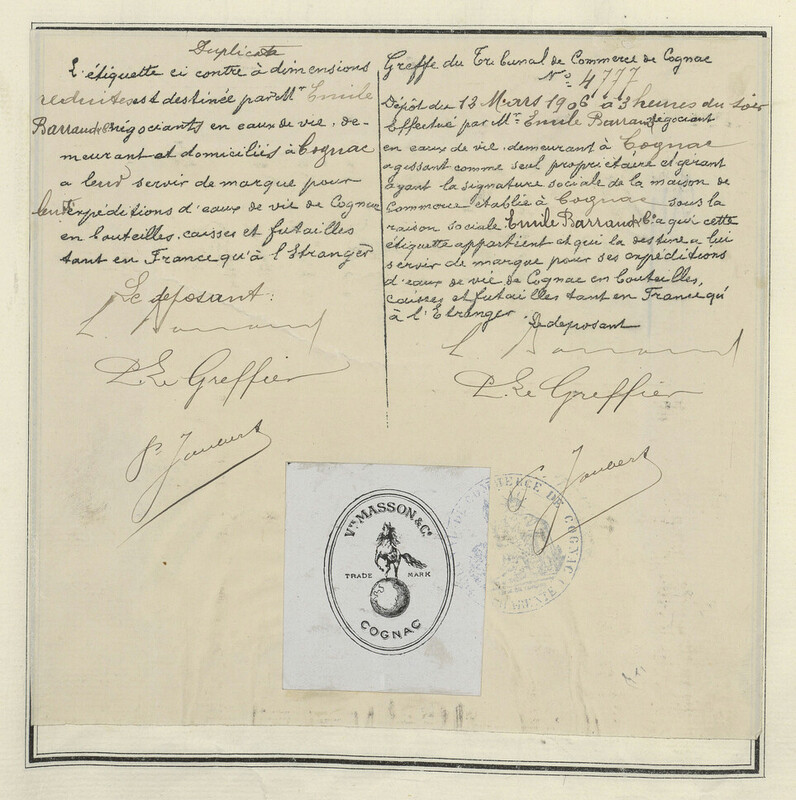 Duplicata
L'étiquette ci contre à dimensions
reduites est destinée par Mr Emile
Barraud & Co négociants en eaux de vie, de-
meurant et domiciliés à Cognac
a leur servir de marque pour
leurs Expéditions d'eaux de vie de Cognac
en bouteilles, caisses et futailles
tant en France qu'à l'Etranger
Le deposant:
P. Le Greffier
Joubert
Greffe du Tribunal de Commerce de Cognac
No 4777
Dépôt du 13 Mars 1906 à 3 heures du soir
Effectué par Mr Emile Barraud négociant
en eaux de vie, demeurant à Cognac
agissant comme seul propriétaire et gérant
ayant la signature sociale de la maison de
Commerce établie à Cognac sous la
raison sociale Emile Barraud & Co a qui cette
étiquette appartient et qui la destine a lui
servir de marque pour ses expéditions
d'eaux de vie de Cognac en bouteilles,
caisses et futailles tant en France qu'
à l'Etranger
Le deposant
P. Le Greffier
Joubert
Vve MASSON & Co
TRADE MARK
COGNAC
DE COMMERCE DE COGNAC
CHARENTE